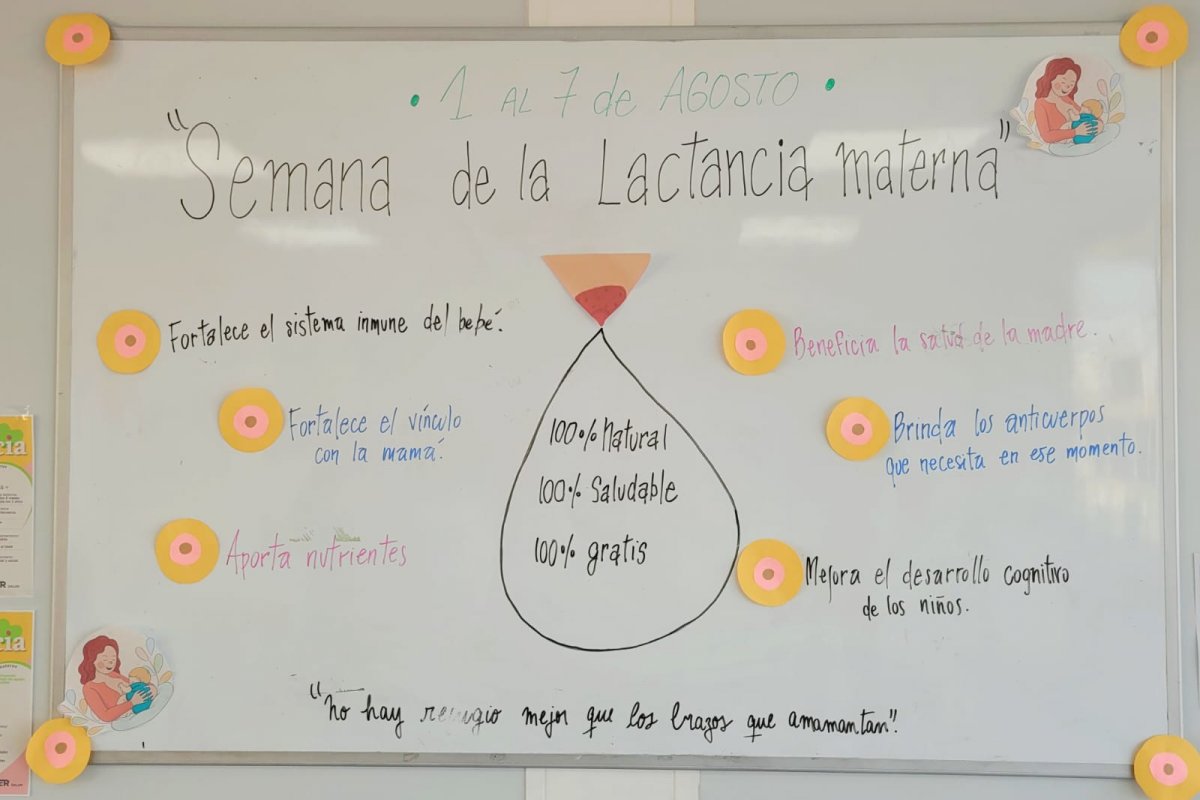 • 1 AL 7 de AGOSTO •
"Semana de la Lactancia materna"
Fortalece el sistema inmune del bebé.
Fortalece el vínculo
con la mamá.
Aporta nutrientes
100% Natural
100% Saludable
100% gratis
Beneficia la salud de la madre.
Brinda los anticuerpos
que necesita en ese momento.
Mejora el desarrollo cognitivo
de los niños.
"No hay refugio mejor que los brazos que amamantan".
cia
cia